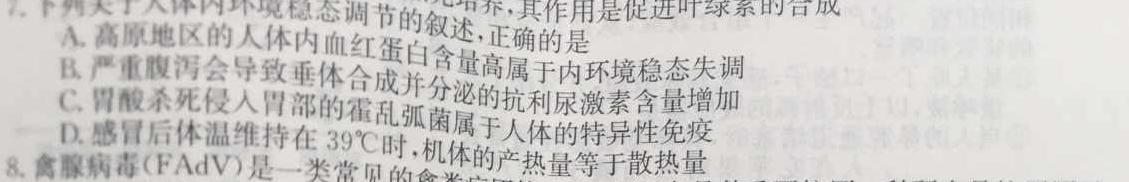 培养,其作用是促进叶绿素的合成
7. 下列关于人体内环境稳态调节的叙述,正确的是
A. 高原地区的人体内血红蛋白含量高属于内环境稳态失调
B. 严重腹泻会导致垂体合成并分泌的抗利尿激素含量增加
C. 胃酸杀死侵人胃部的霍乱弧菌属于人体的特异性免疫
D. 感冒后体温维持在39℃时,机体的产热量等于散热量
8. 禽腺病毒(FAdV)是一类常见的禽类